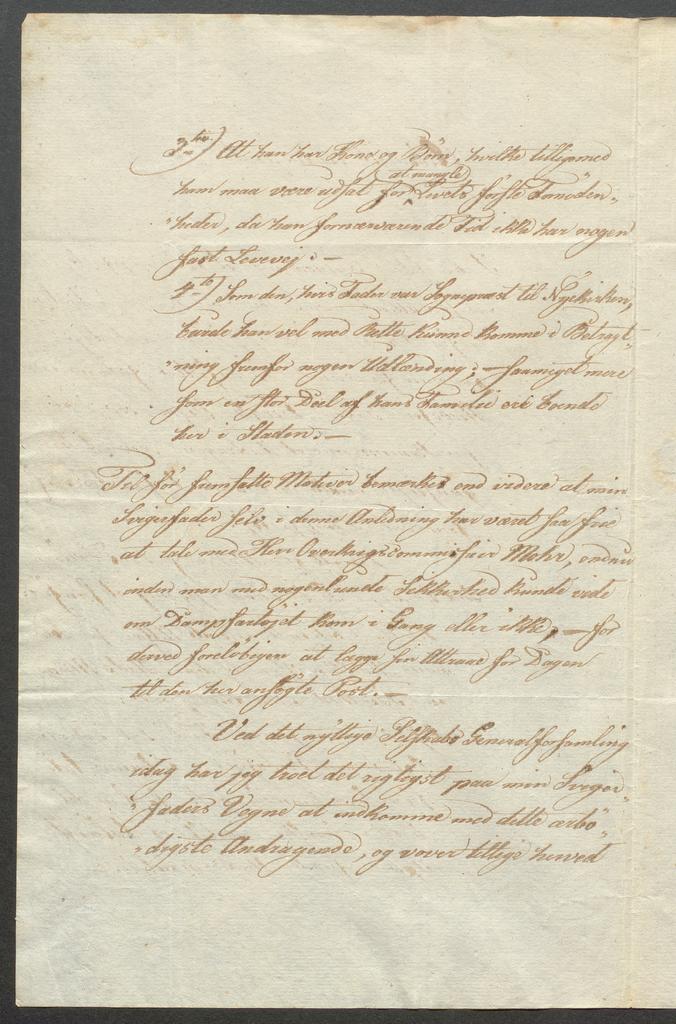 3^tio) At han har Kone og Børn, hvilke tilligemed
at mangle
ham maa være udsat for Livets første Fornøden-
"heder, da han fornærværende Tid ikke har nogen
fast Levevej. —
4^to) Som den, hvis Fader var Sognepræst til Nykirken,
burde han vel med Rette kunne komme i Betragt-
"ning fremfor nogen Udlænding; — saameget mere
som en stor Deel af hans Familie ere boende
her i Staden. —
Til før fremsatte Motiver bemærkes end videre at min
Svigerfader selv i denne Anledning har været saa frie
at tale med Herr Overkrigscommissair Mohr, endnu
inden man med nogenlunde Sikkerhed kunde vide
om Dampfartøjet kom i Gang eller ikke, — for
derved foreløbigen at lægge sin Attraae for Dagen
til den her ansøgte Post. —
Ved det nyttige Selskabs Generalforsamling
idag har jeg troet det rigtigst paa min Sviger-
"faders Vegne at indkomme med dette ærbø-
"digste Andragende, og vover tillige herved